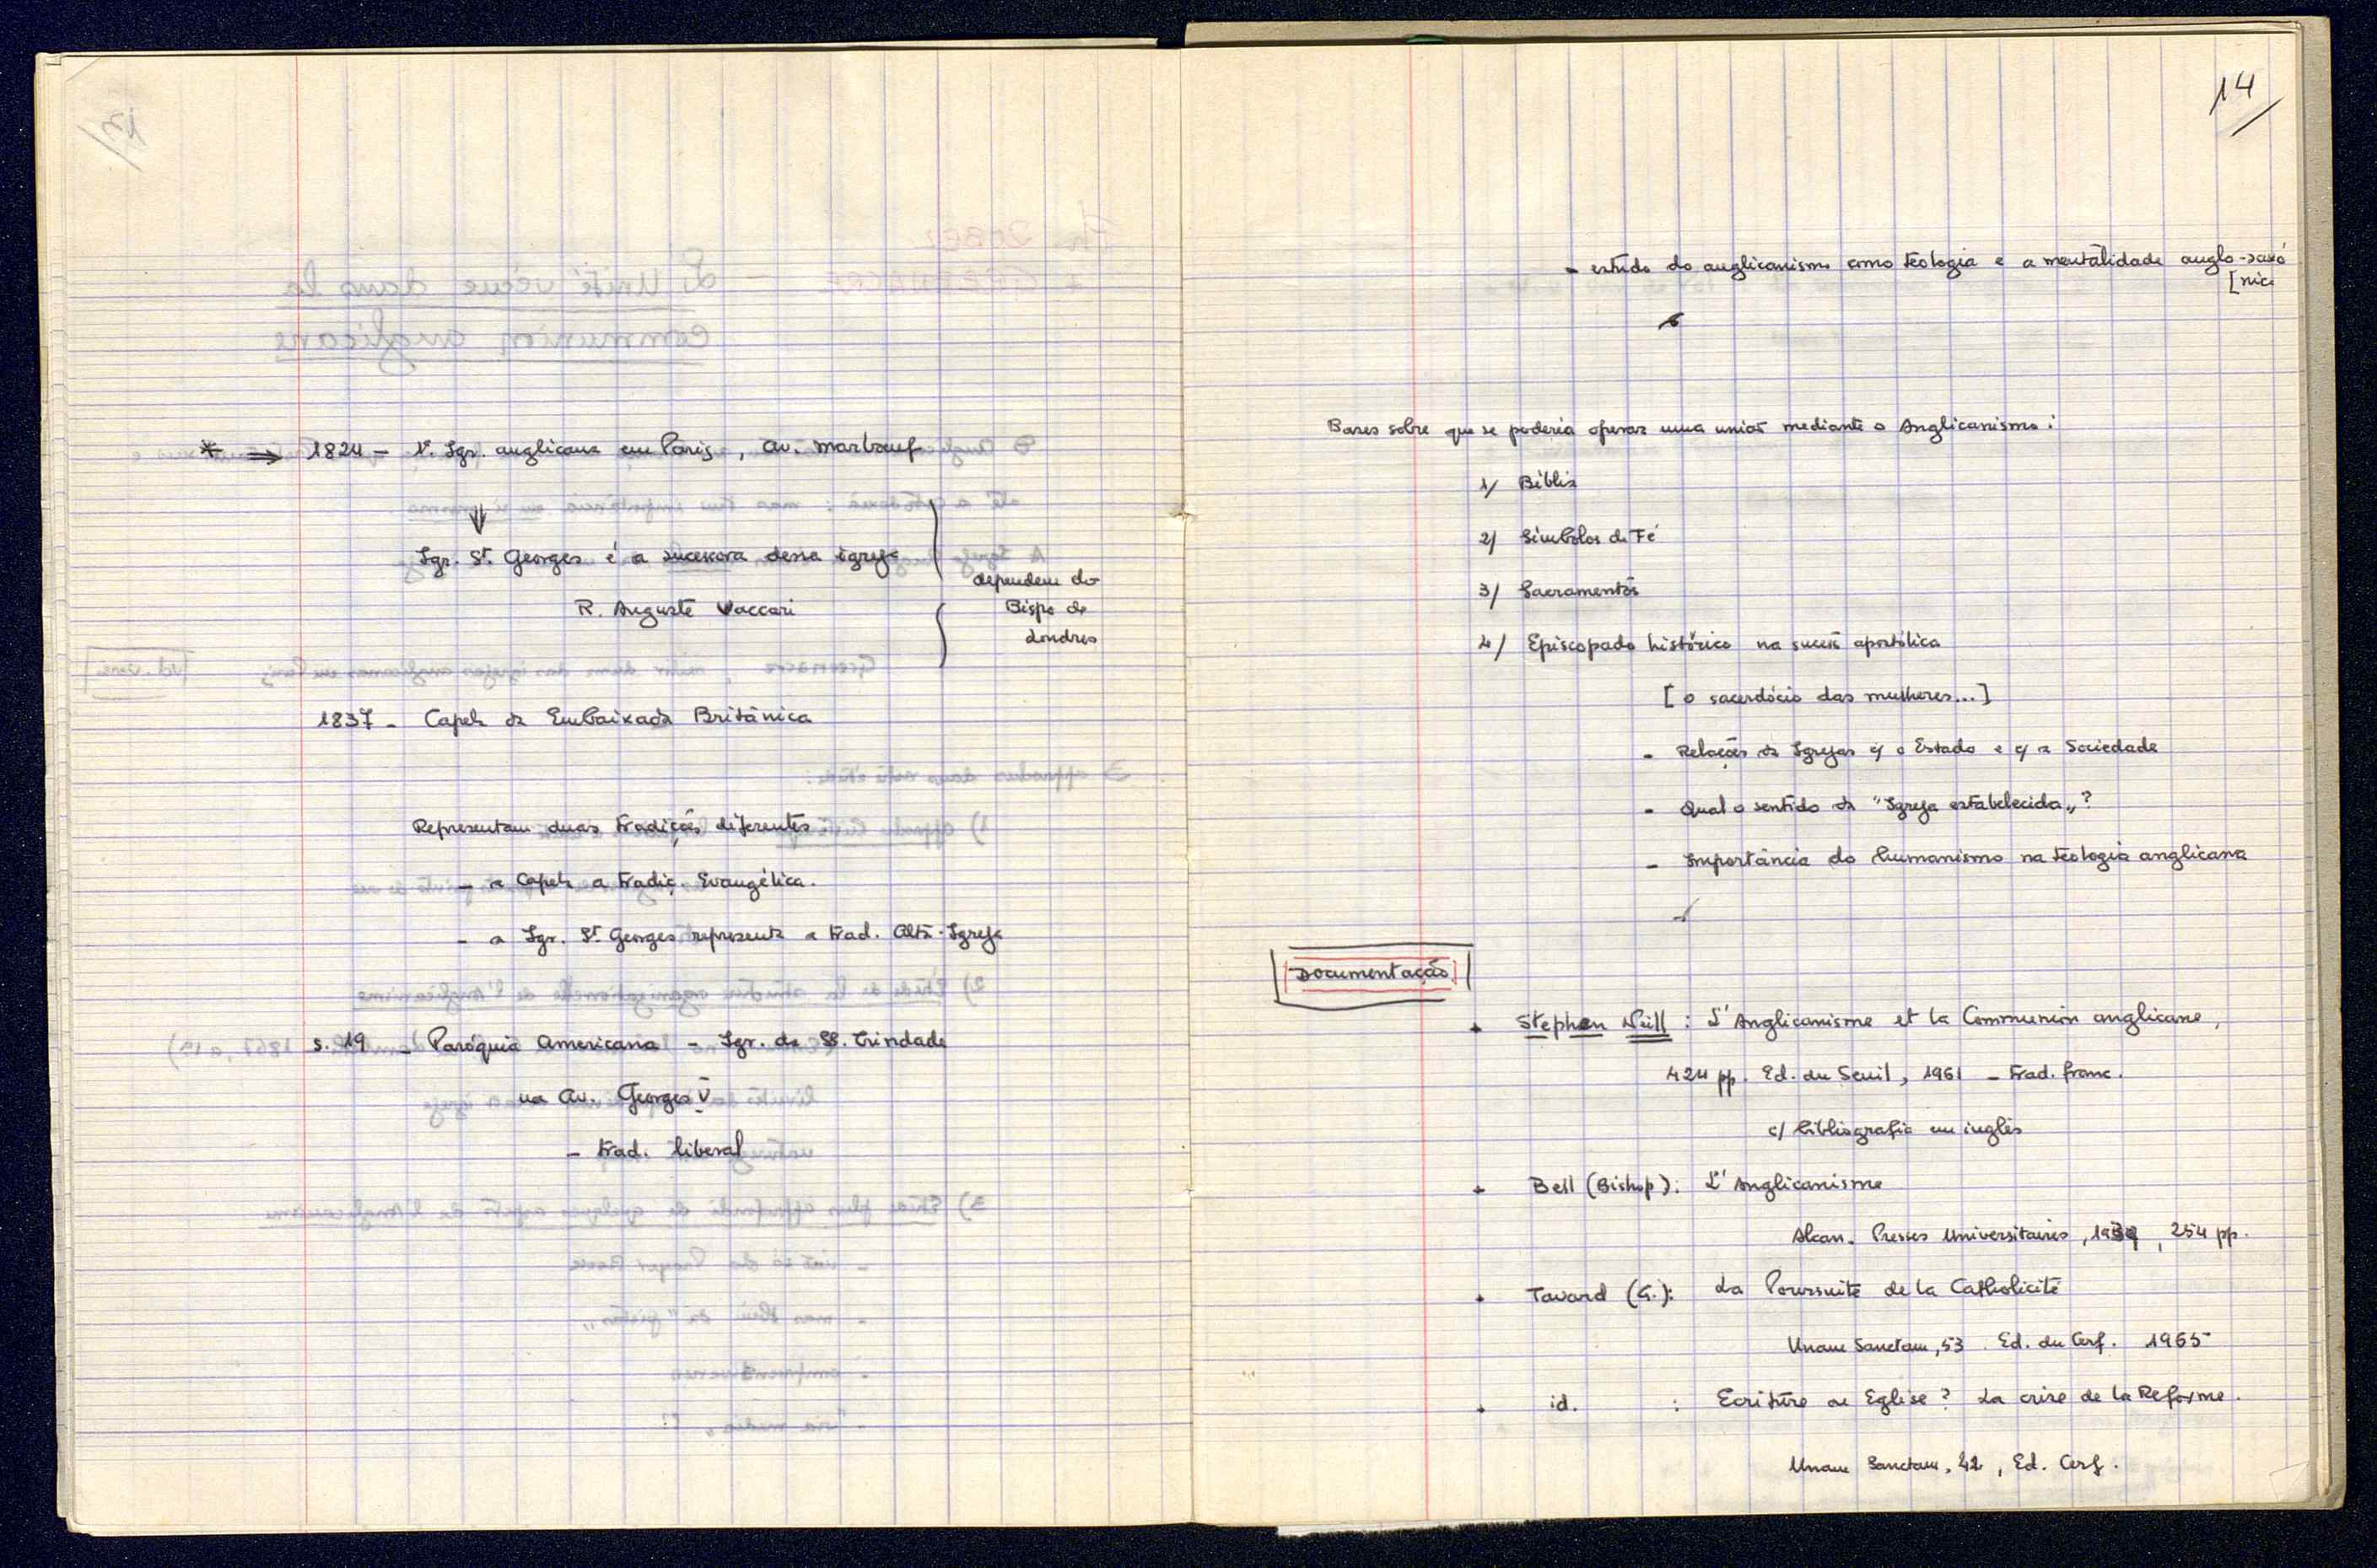 * ⇒ 1824 – 1ª. Igr. anglicana em Paris, av. Marbœuf
⇓
Igr. St. Georges é a sucessora dessa igreja
R. Auguste Vaccari
dependem do
Bispo de
Londres
1837 – Capela da Embaixada Britânica
Representam duas tradições diferentes
– a Capela a tradiç. Evangélica.
– a Igr. St. Georges representa a trad. Alta-Igreja
s. 19 – Paróquia Americana – Igr. da SS. Trindade
na Av. Georges V
– trad. liberal
14
– estudo do anglicanismo como teologia e a mentalidade anglo-saxó
[nica
Bases sobre que se poderia operar uma união mediante o Anglicanismo:
1/ Bíblia
2/ Símbolos da Fé
3/ Sacramentos
4/ Episcopado histórico na suces. apostólica
[o sacerdócio das mulheres...]
– Relações da Igrejas c/ o Estado e c/ a Sociedade
– Qual o sentido da "Igreja estabelecida„?
– Importância do humanismo na teologia anglicana
Documentação
Stephen Neill : L'Anglicanisme et la Communion anglicane,
424 pp. Ed. du Seuil, 1961 – trad. franc.
c/ bibliografia em inglês
Bell (Bishop): L'Anglicanisme
Alcan. Presses Universitaires, 1939, 254 pp.
Tavard (G.): La Poursuite de la Catholicité
Unam Sanctam, 53. Ed. du Cerf. 1965
id. : Ecriture ou Eglise? La crise de la Reforme.
Unam Sanctam, 42, Ed. Cerf.